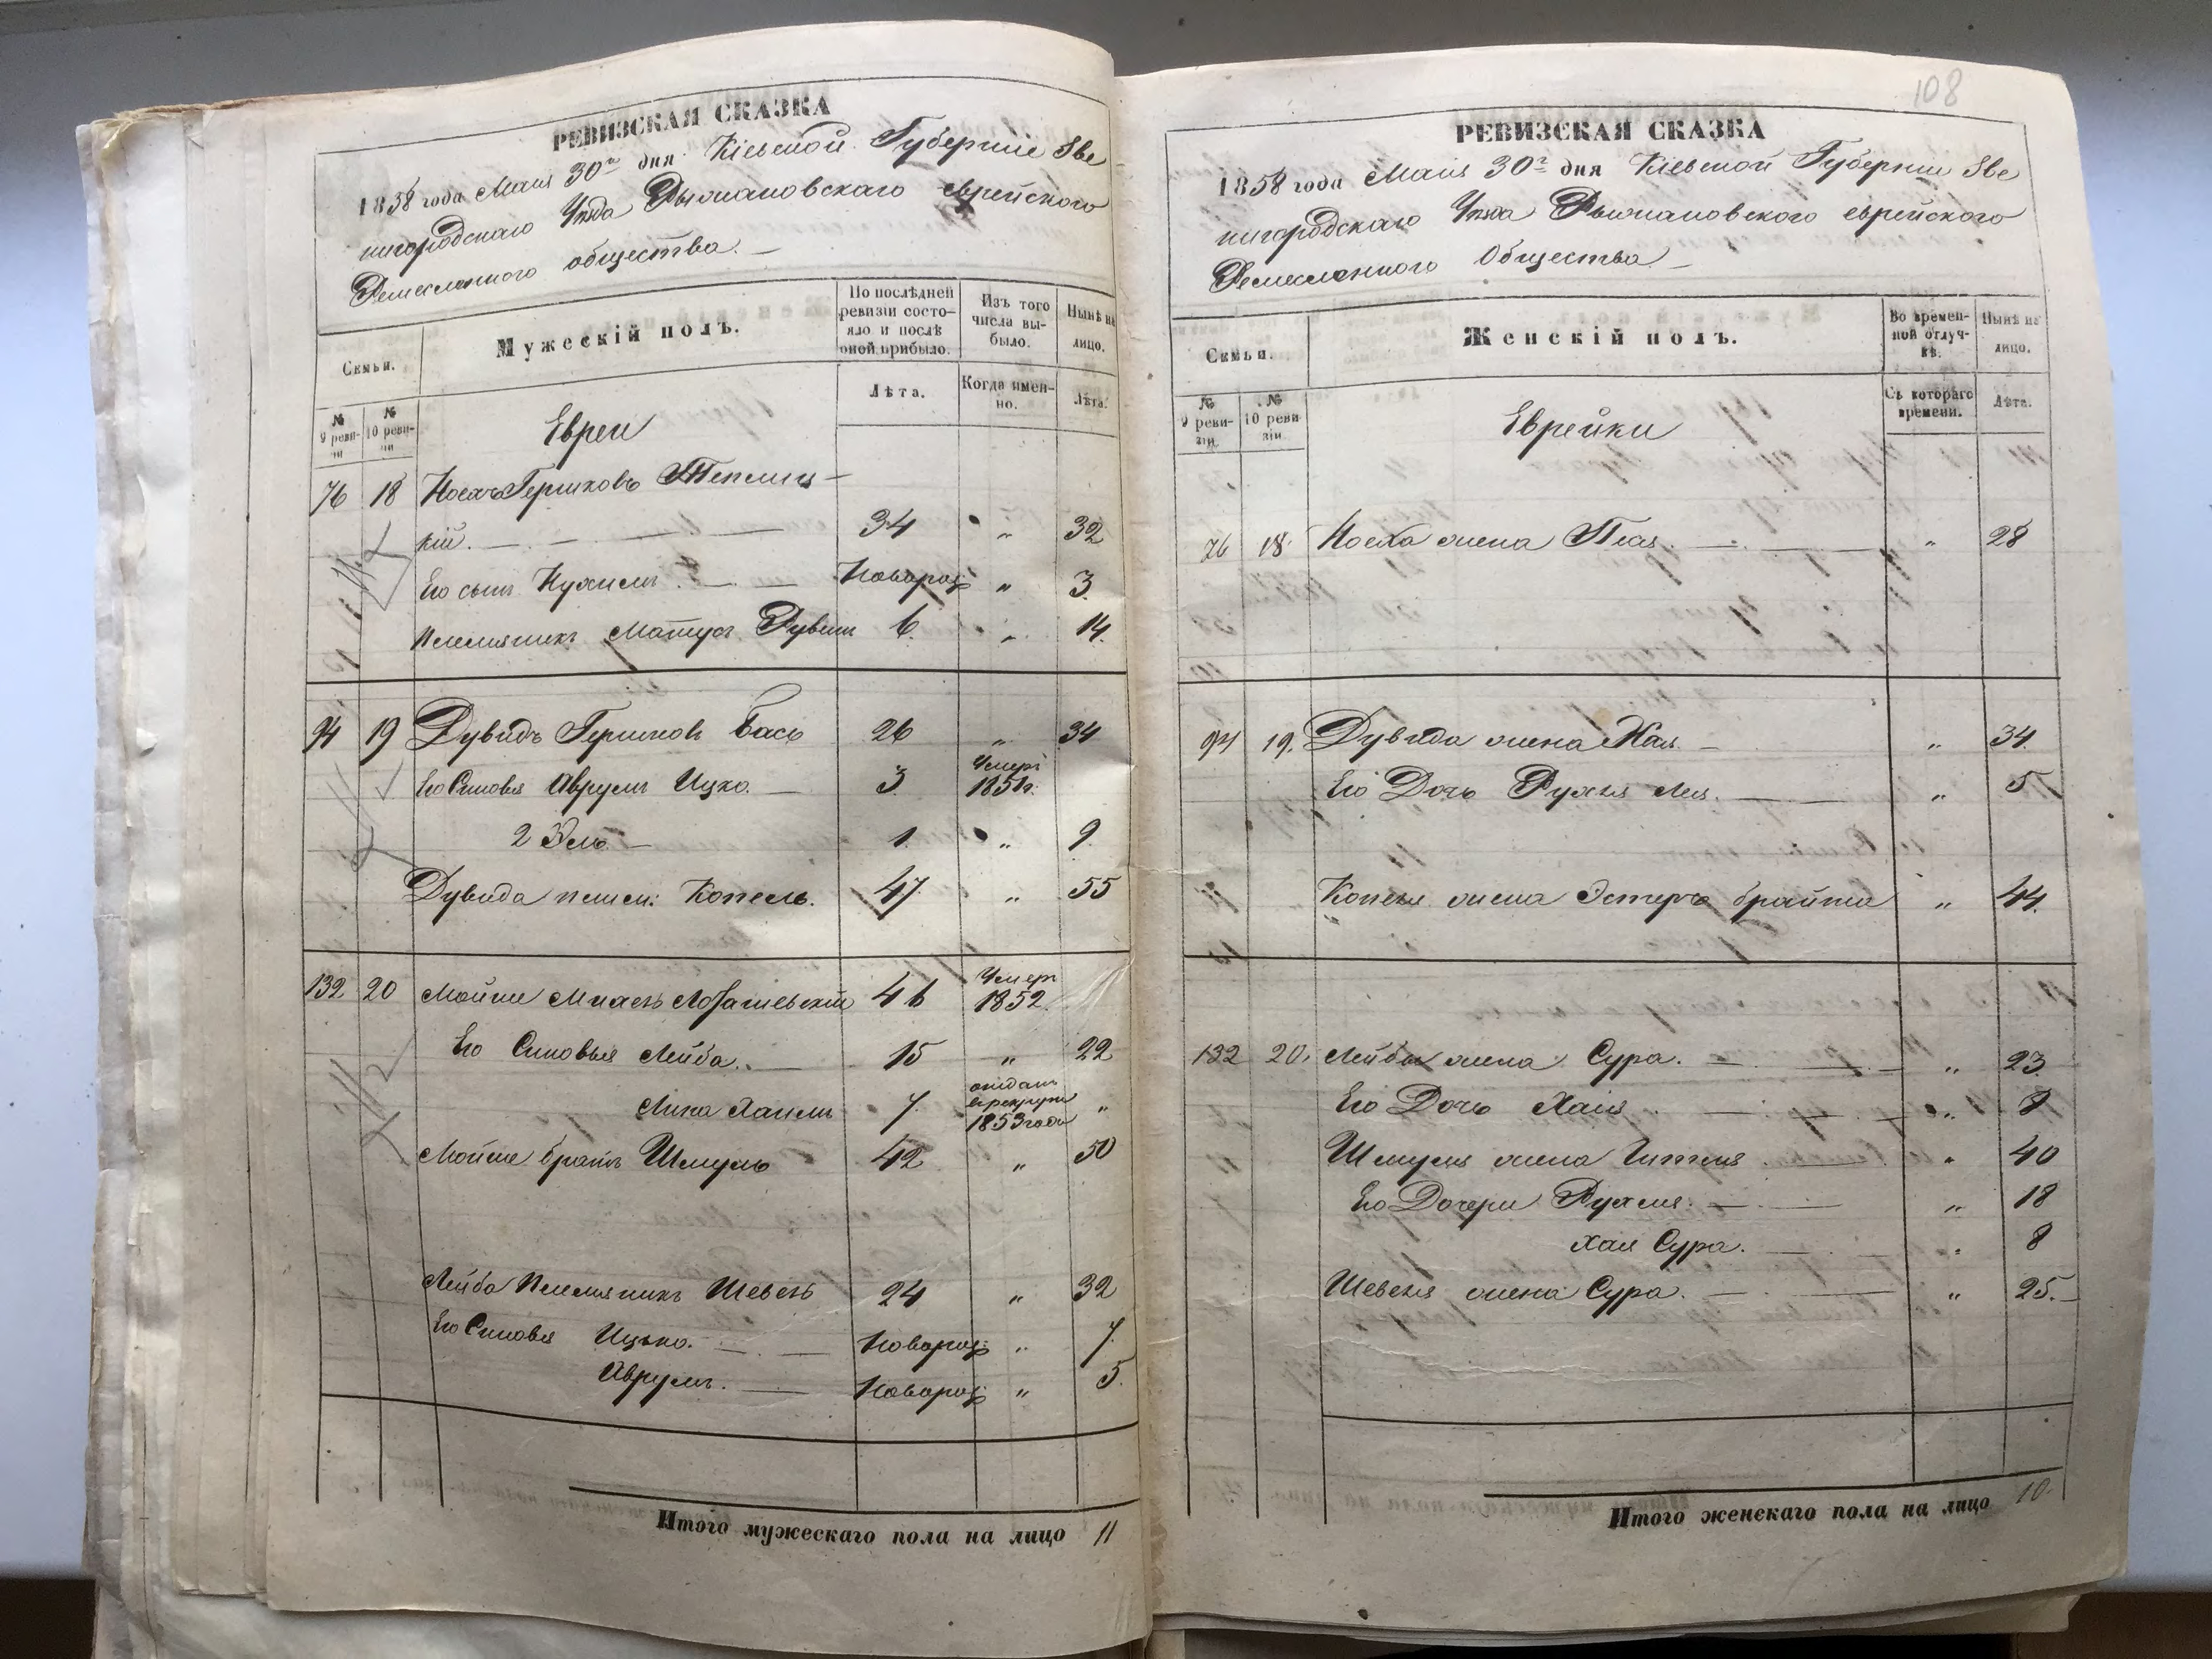 РЕВИЗСКАЯ СКАЗКА
1858 года Мая 30го дня Кіевской Губерніи Зве
нигородскаго Уезда Рыжановскаго еврейского
Ремесленного общества. —
Семьи.
Мужескій полъ.
По послѣдней ревизіи состояло и послѣ оной прибыло.
Изъ того числа выбыло.
Нынѣ на лицо.
№ 9 ревизіи
№ 10 ревизіи
Лѣта.
Когда именно.
Лѣта.
Евреи
76 18 Іосхъ Гершковъ Теплиц-
кій. — 34 " 32
Его сынъ Нухимъ. — Новорож „ 3.
Племянникъ Матусъ Рувин 6. „ 14.
94 19 Дувидъ Гершковъ Бась 26 „ 34
Его Сыновья Аврумъ Ицко. — 3. Умеръ 1851г.
2 Эль — 1. „ 9.
Дувида племен: Копель. 47. „ 55
132 20 Мойше 46 Умер 1852.
Его Сыновья Лейба. — 15 „ 22
7. отданъ в рекруты 1853 года „
Мойше братъ Шмуль 42 „ 50
Лейба Племянникъ Шевель 24 „ 32
Его Сыновья Ицько. — Новорож „ 7.
Аврумъ. — Новорож „ 5.
Итого мужескаго пола на лицо 11
108
РЕВИЗСКАЯ СКАЗКА
1858 года Мая 30го дня Кіевской Губерніи Зве
нигородскаго Уезда Рыжановского еврейского
Ремесленного Общества —
Семьи.
Женскій полъ.
Во временной отлучкѣ.
Нынѣ на лицо.
№ 9 ревизіи
№ 10 ревизіи
Съ котораго времени.
Лѣта.
Еврейки
76 18. жена — „ 28
94 19. Дувида жена Хая. — „ 34.
Его Дочь Рухля Лея. — „ 5
Копеля жена Эстеръ Брайна „ 44.
132 20. Лейбы жена Сура. — „ 23.
Его Дочь Хая — „
Шмуля жена Гитля — „ 40
Его Дочери Рухля. — „ 18
Хая Сура. — „ 8
Шевеля жена Сура. — „ 25. —
Итого женскаго пола на лицо 10.